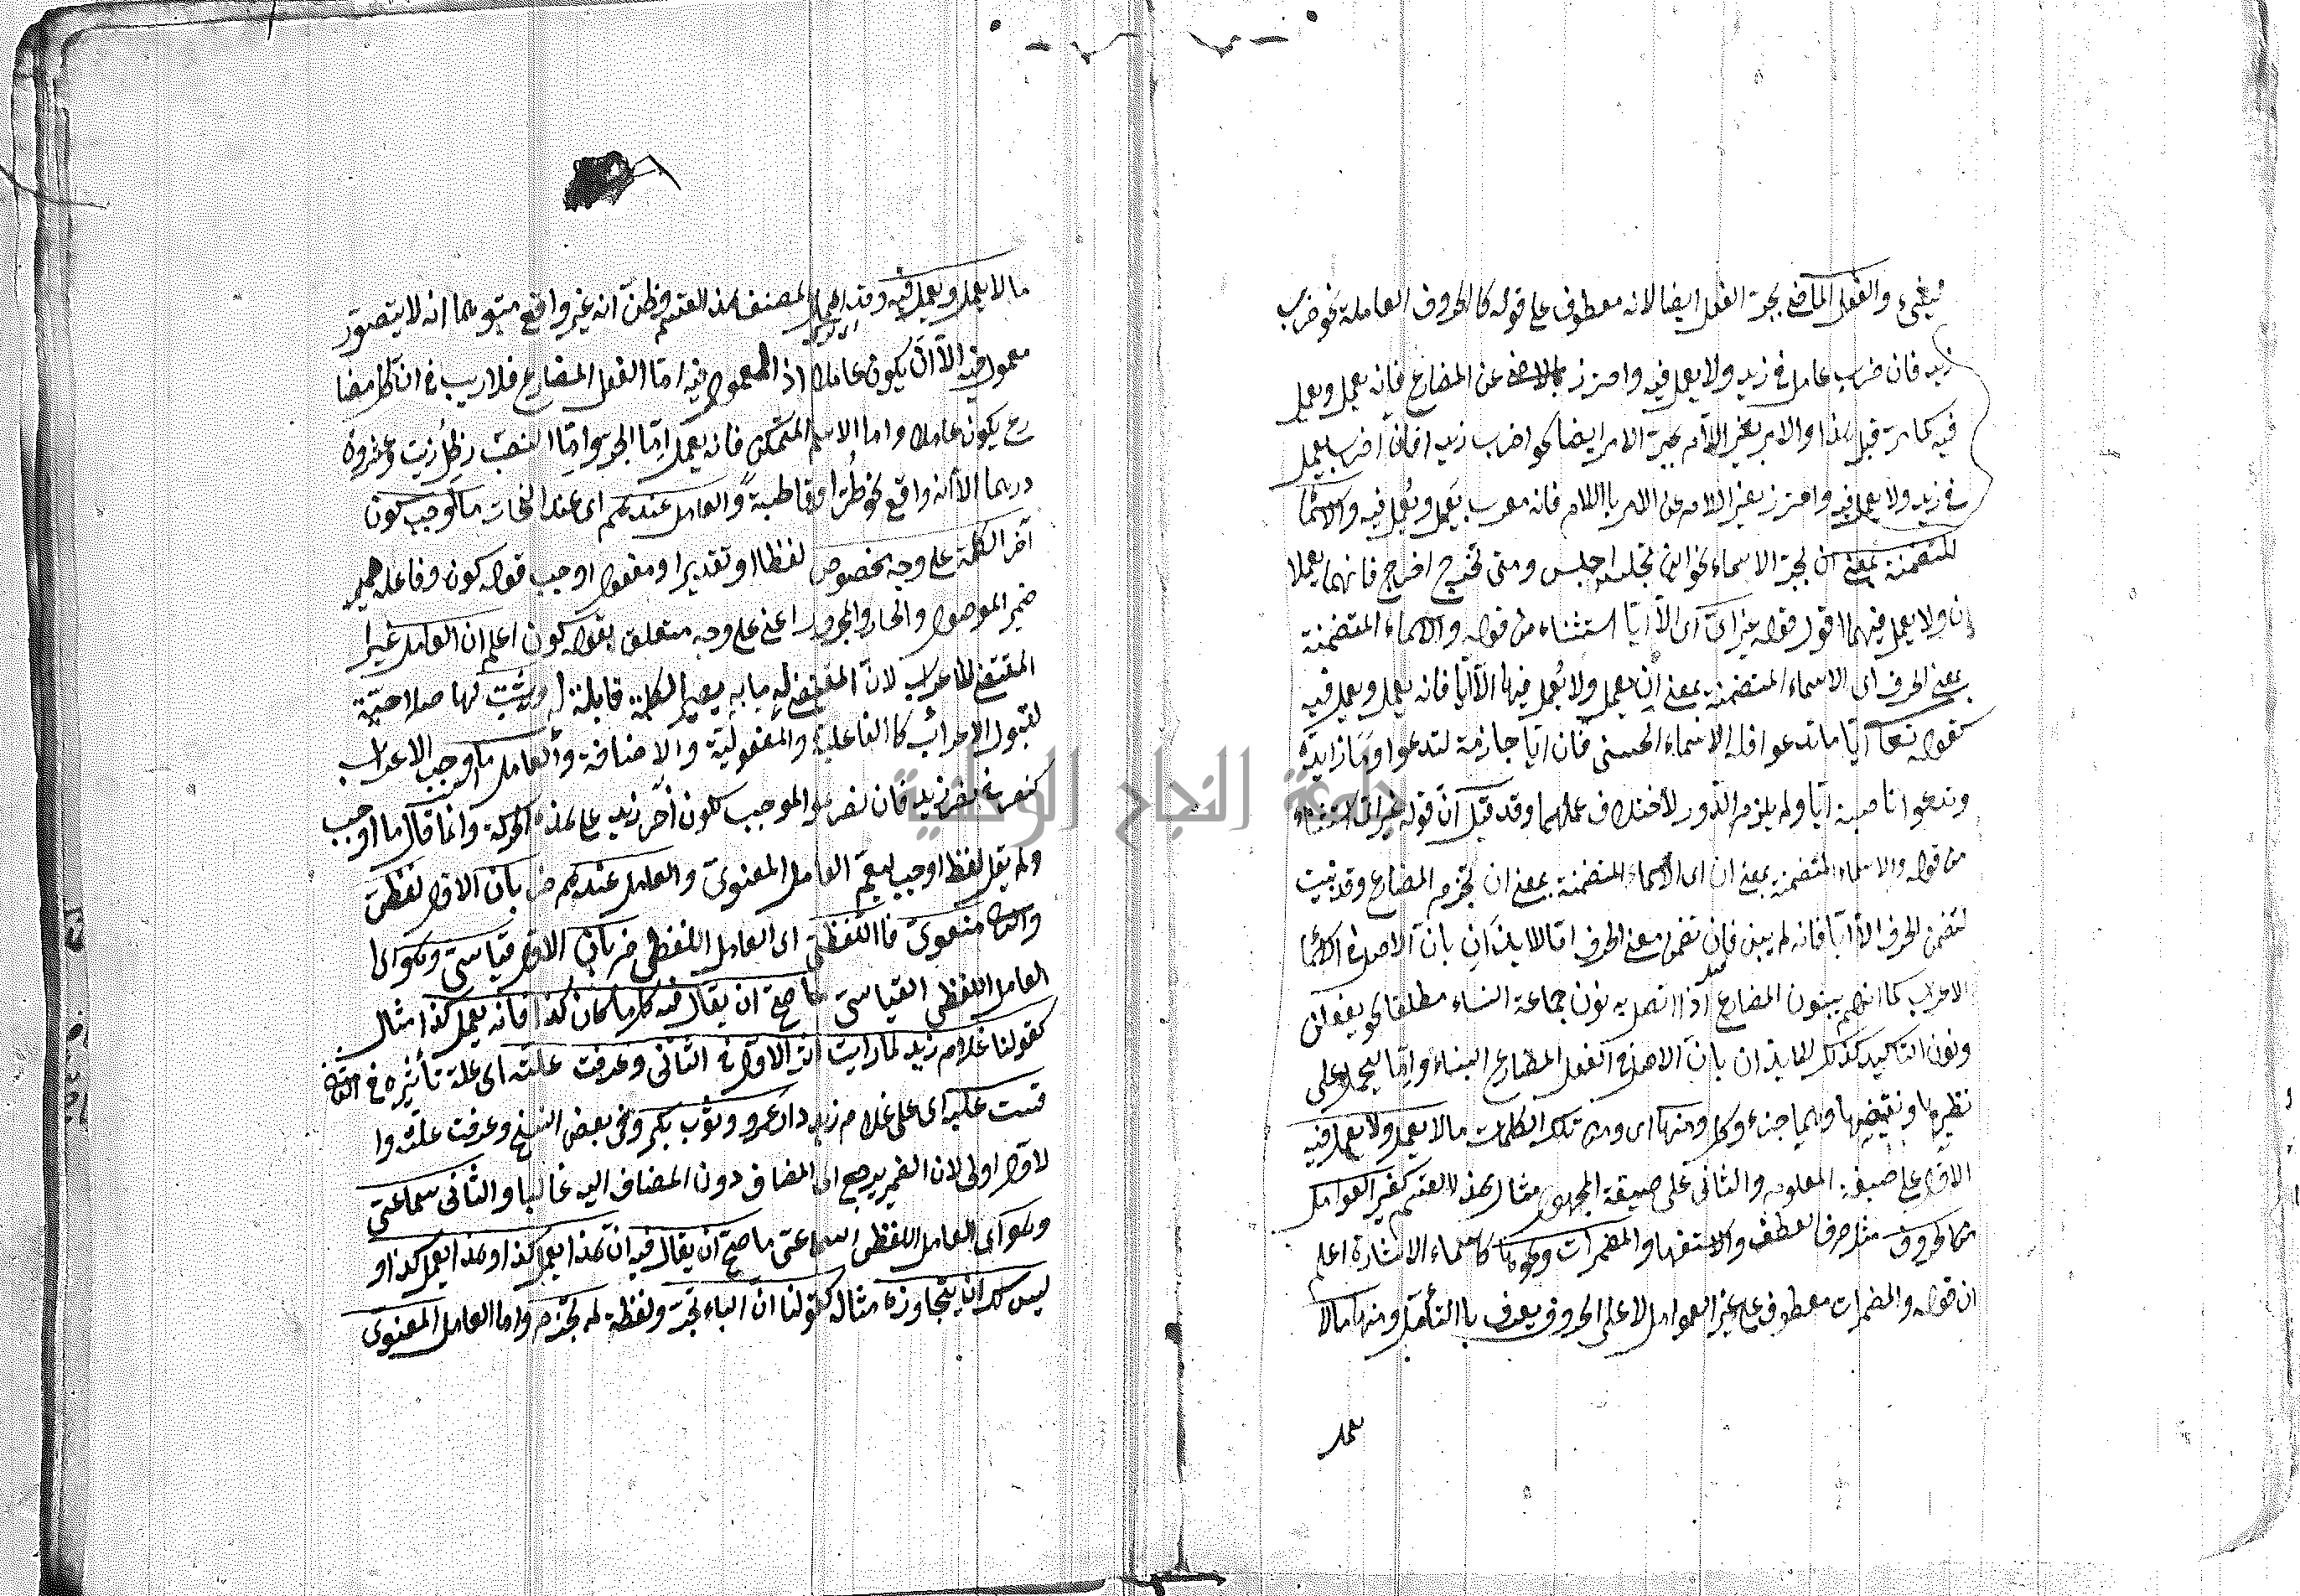 والفعل الماضى بجر الفعل ايضا لانه معطوف على قوله كالحروف العاملة نحو ضرب
زيد فان ضرب عامل فى زيد ولا يعمل فيه واحترز بالماضى عن المضارع فانه يعمل ويعمل
فيه كما مر قبل هذا والامر بغير اللام بجر الامر ايضا نحو اضرب زيدا فان اضرب يعمل
فى زيد ولا يعمل فيه واحترز بغير اللام عن الامر باللام فانه معرب يعمل ويعمل فيه والاسما
المتضمنة بمعنى ان بجر الاسماء نحو اين تجلس اجلس ومتى تخرج اخرج فانهما يعملا
ن ولا يعمل فيهما اقول قوله غير اى اى الا ايا استثناء من قوله والاسماء المتضمنة
بمعنى الحرف اى الاسماء المتضمنة بمعنى ان يعمل ولا يعمل فيها الا ايا فانه يعمل ويعمل فيه
كقوله تعا ايا ما تدعوا فله الاسماء الحسنى فان ايا جازمة لتدعوا وما زايدة
وتدعوا ناصبة ايا ولم يلزم الدور لاختلاف عملهما وقد قيل ان قوله غير اى استثناء
من قوله والاسماء المتضمنة بمعنى ان اى الاسماء المتضمنة بمعنى ان تجزم المضارع وقد بنيت
لتضمن الحرف الا ايا فانه لم يبن فان تضمن معنى الحرف اما بان الاصل فى الاسما
الاعراب كما انهم يبنون المضارع عند اذا اتصل به نون جماعة النساء مطلقا نحو يفعلن
ونون التاكيد كذلك بان الاصل فى الفعل المضارع البناء واما ليحمل على
نظيرها ونقيضها وهما جزء وكل ومنها اى ومن تلك الكلمات ما لا يعمل ولا يعمل فيه
الاول على صيغة المعلوم والثانى على صيغة المجهول مثال هذا القسم كغير العوامل
من الحروف مثل حرف العطف والاستفها والمضمرات ونحوها كاسماء الاشارة اعلم
ان قوله والمضمرات معطوف على غير العوامل لا على الحروف يعرف بالتأمل ومنها ما لا
يعمل
ما لا يعمل ويعمل فيه وقد اهمل المصنف هذ القسم وظن انه غير واقع متوهما انه لا يتصور
معمول فيه الا ان يكون عاملا اذ المعمول فيه اما الفعل المضارع فلا ريب فى ان كل مضا
رع يكون عاملا واما الاسم المتمكن فانه يعمل اما الجر واما النصب وعنده
درهما الا انه واقع نحو طرا وقاطبة والعامل عندهم اى عند النحات ما اوجب كون
آخر الكلمة على وجه مخصوص لفظا او تقديرا ومفعول اوجب قوله كون وفاعله
ضمير الموصول والجار والمجرور اعنى على وجه متعلق بقوله كون اعلم ان العامل غير ا
لمقتضى للاعراب لان المقتضى له ما به يصير الكلمة قابلة له ويثبت لها صلاحية
لقبول الاعراب كالفاعلية والمفعولية والاضافة والعامل ما اوجب الاعراب
كنصر فى نصر زيد فان نصر هو الموجب لكون آخر زيد على هذه الحركة وانما قال ما اوجب
ولم يقل لفظ اوجب ليعم العامل المعنوى والعامل عندهم ضربان الاول لفظى
والثا معنوى فاللفظى اى العامل اللفظى ضربان الاول قياسى وهو اى ا
لعامل اللفظى القياسى ما صح ان يقال فيه كل ما كان كذا فانه يعمل كذا مثال
كقولنا غلام زيد لما رايت اثر الاول فى الثانى وعرفت علته اى علة تأثيره فى الثا
قست عليه اى على غلام زيد دار عمرو وثوب بكر وفى بعض النسخ وعرفت علته وا
لاول اولى لان الضمير يرجع الى المضاف دون المضاف اليه غالبا والثانى سماعى
وهو اى العامل اللفظى السماعى ما صح ان يقال فيه ان هذا يعمل كذا وهذا يعمل كذا و
ليس لك ان يتجاوزه مثاله كقولنا ان الباء تجر ولفظة لم تجزم واما العامل المعنوى
جامعة النجاح الوطنية